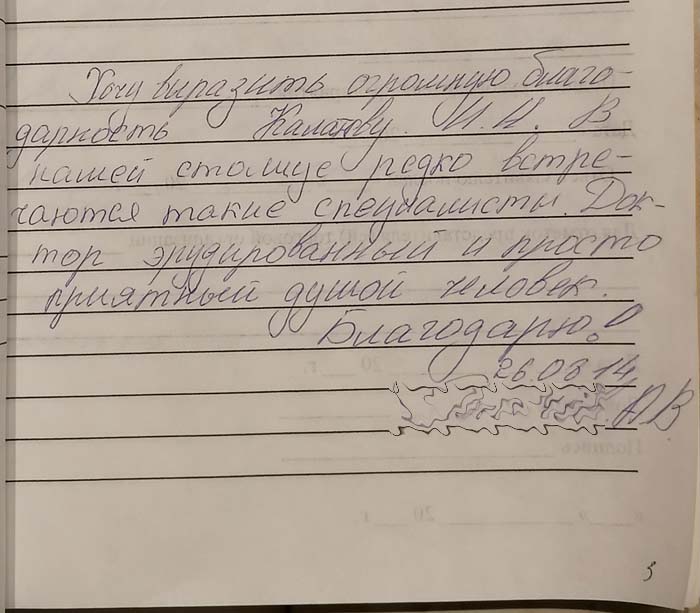 Хочу выразить огромную благо-
дарность И.Н. В
нашей столице редко встре-
чаются такие специалисты. Док-
тор эрудированный и просто
приятный душой человек.
Благодарю!
26.08.14
А.В
3